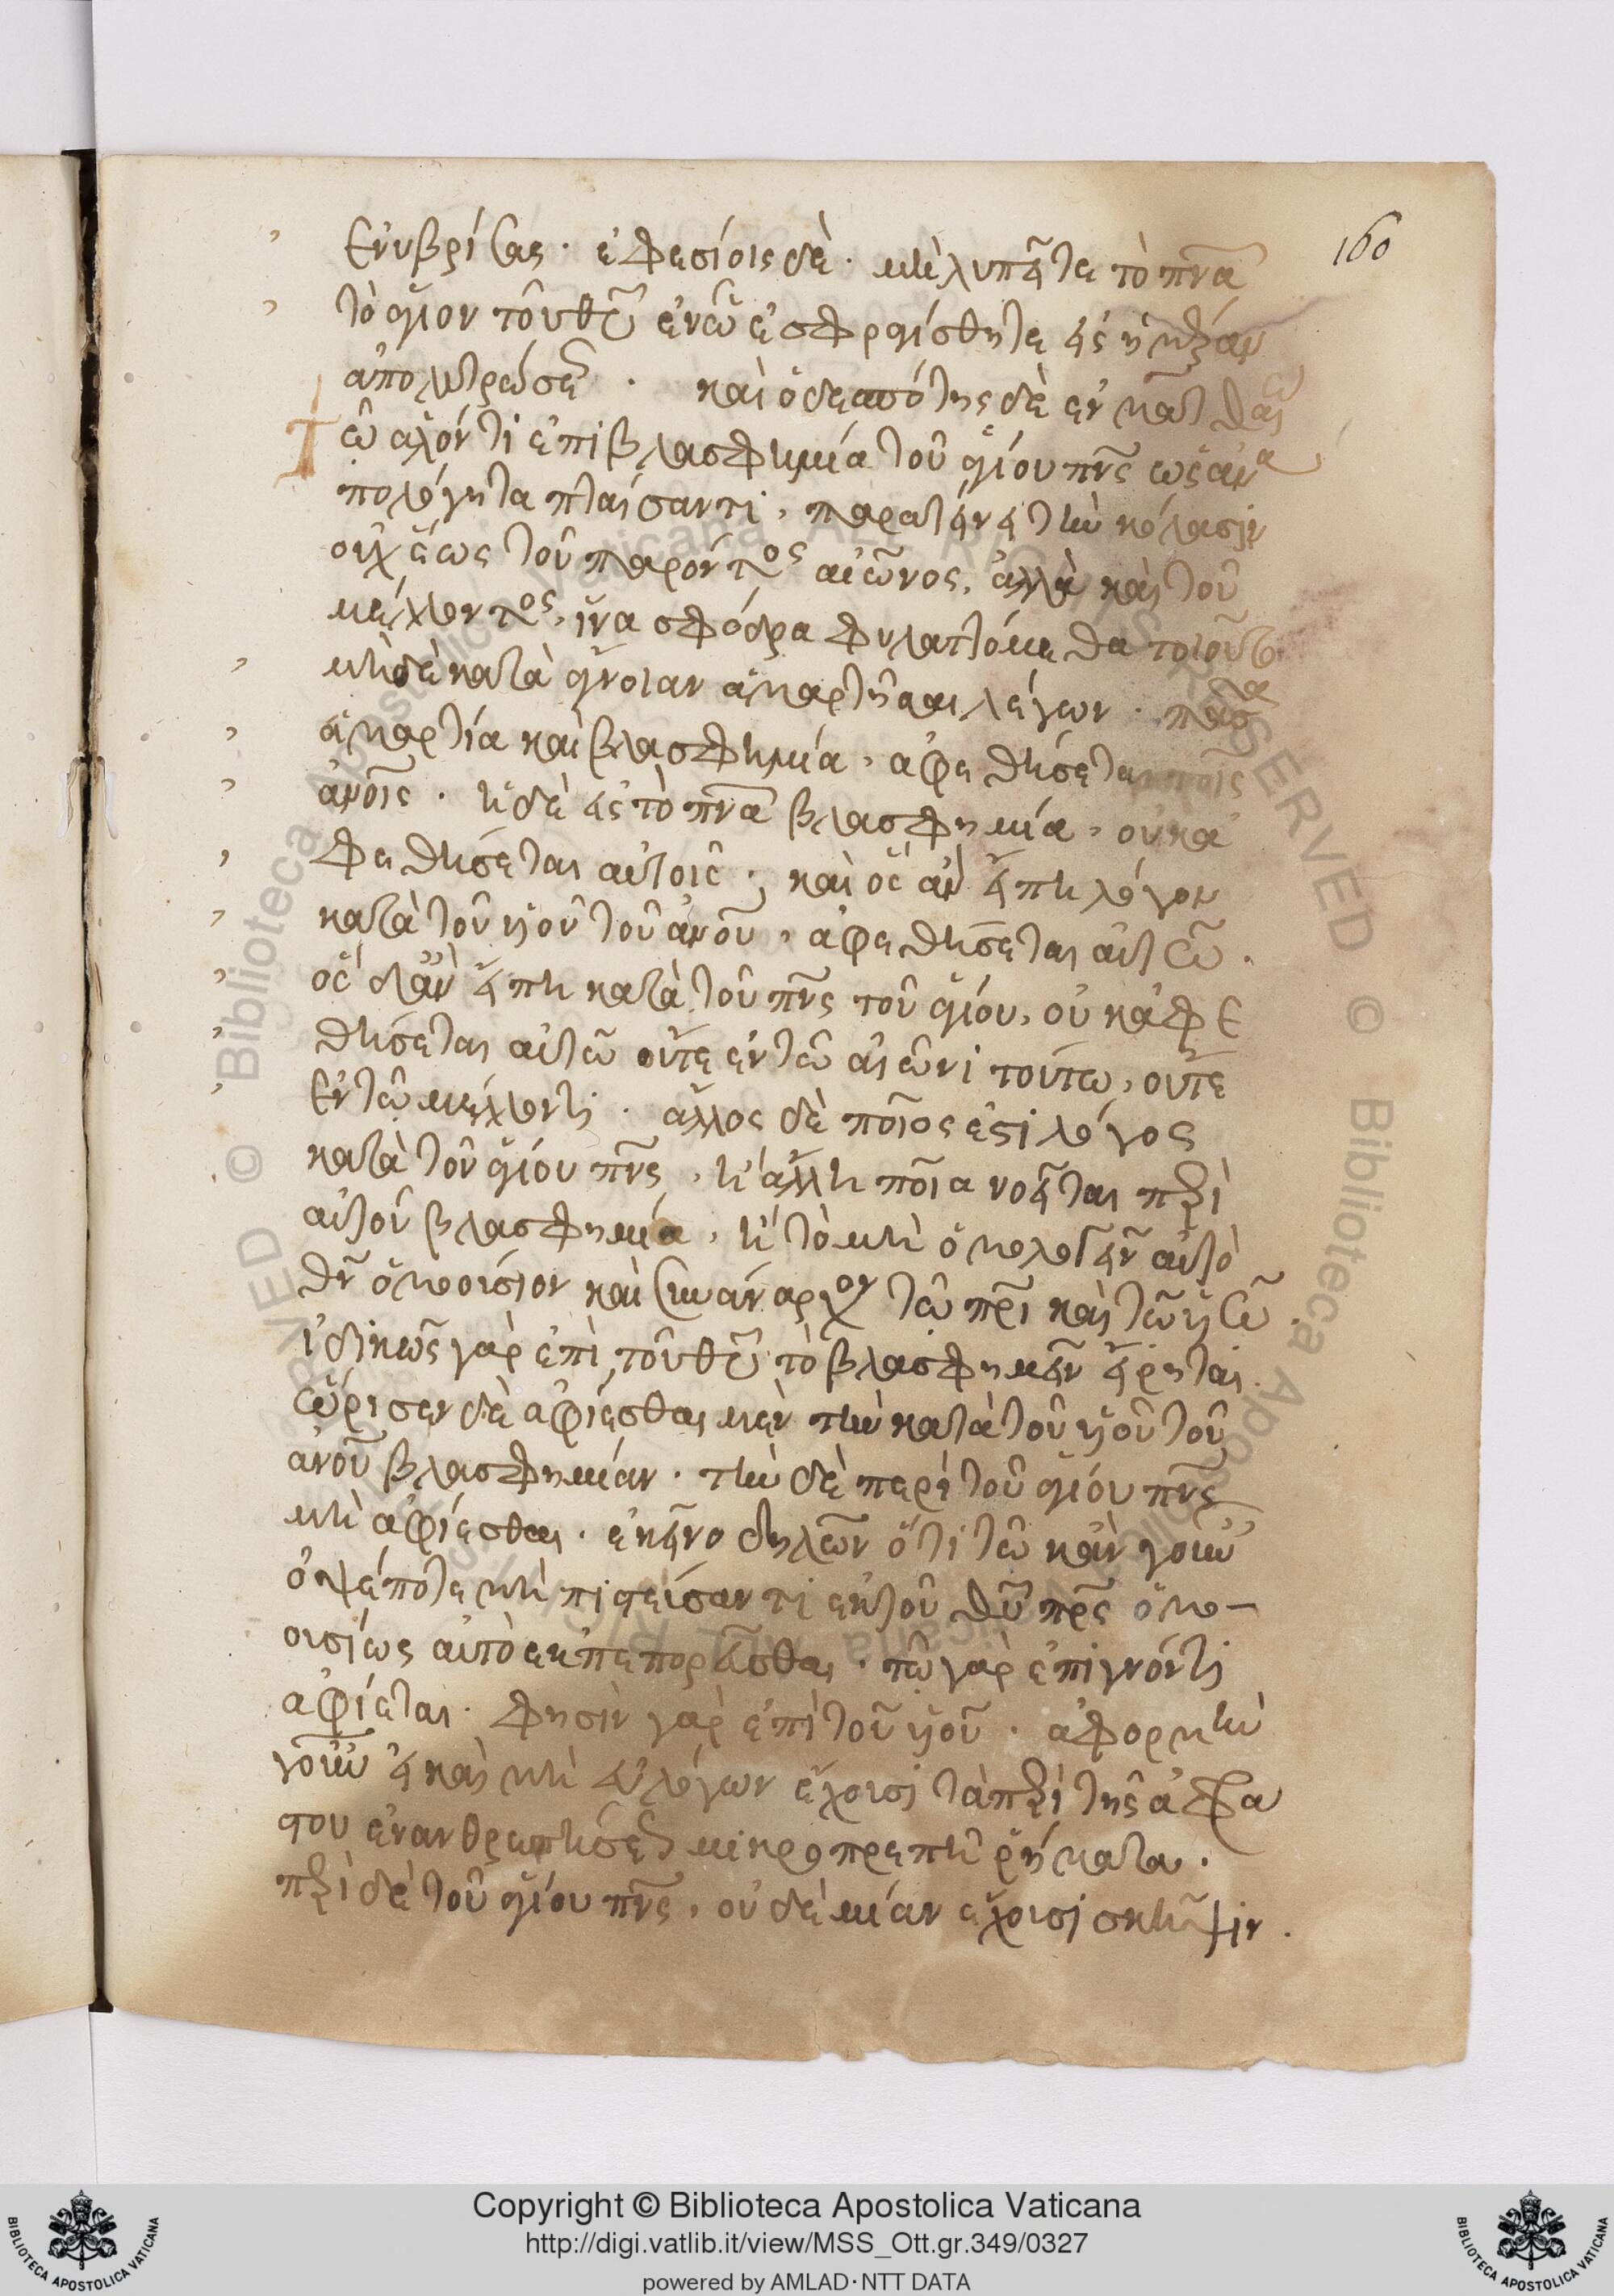 160
ἐνυβρίσας· ἐφεσίοις δὲ· μὴ λυπεῖτε τὸ πν̅α
τὸ ἅγιον τοῦ θυ̅ ἐν ὧ ἐσφραγίσθητε εἰς ἡμέραν
ἀπολυτρώσεως· καὶ ὁ δεσπότης δὲ ἐν ματθαίω
τῶ ἁλόντι ἐπὶ βλασφημία τοῦ ἁγίου πν̅ς ὡς ἀνα
πολόγητα πταίσαντι, παρατείνει τὴν κόλασιν
οὐχ ἕως τοῦ παρόντος αἰῶνος, ἀλλὰ καὶ τοῦ
μέλλοντος, ἵνα σφόδρα φυλαττόμεθα τοιοῦτο
μὴ δὲ κατὰ ἄγνοιαν ἁμαρτῆσαι λέγων· πᾶσα
ἁμαρτία καὶ βλασφημία, ἀφεθήσεται τοῖς
ἀν̅οις· ἡ δὲ εἰς τὸ πν̅α βλασφημία, οὐκ ἀ
φεθήσεται αὐτοῖς· καὶ ὃς ἂν εἴπη λόγον
κατὰ τοῦ υἱοῦ τοῦ ἀν̅ου, ἀφεθήσεται αὐτῶ.
ὃς δ' ἂν εἴπη κατὰ τοῦ πν̅ς τοῦ ἁγίου, οὐκ ἀφε
θήσεται αὐτῶ οὔτε ἐν τῶ αἰῶνι τούτω, οὔτε
ἐν τῶ μέλλοντι· ἄλλος δὲ ποῖος ἐστι λόγος
κατὰ τοῦ ἁγίου πν̅ς, ἢ ἄλλη ποία νοεῖται περὶ
αὐτοῦ βλασφημία, ἢ τὸ μὴ ὁμολογεῖν αὐτὸ
θν̅ ὁμοούσιον καὶ συνάναρχον τῶ πρ̅ι καὶ τῶ υἱῶ.
ἰδικῶς γὰρ ἐπὶ τοῦ θυ̅ τὸ βλασφημεῖν εἴρηται.
ὥρισεν δὲ ἀφίεσθαι μὲν τὴν κατὰ τοῦ υἱοῦ τοῦ
ἀν̅ου βλασφημίαν· τὴν δὲ περὶ τοῦ ἁγίου πν̅ς
μὴ ἀφίεσθαι· ἐκεῖνο δηλῶν ὅτι τῶ κἂν γοῦν
ὀψέποτε μὴ πιστεύσαντι ἐκ τοῦ θυ̅ πρ̅ς ὁμο-
ουσίως αὐτὸ ἐκπεπορεῦσθαι· τῶ γὰρ ἐπιγνόντι
ἀφίεται· φησὶν γὰρ ἐπὶ τοῦ υἱοῦ· ἀφορμὴν
γοῦν εἰ καὶ μὴ εὔλογον ἔχουσι τὰ περὶ τῆς ἀφρά
στου ἐνανθρωπήσεως μικροπρεπῆ ῥήματα.
περὶ δὲ τοῦ ἁγίου πν̅ς, οὐδεμίαν ἔχουσι σκῆψιν.
Copyright © Biblioteca Apostolica Vaticana
http://digi.vatlib.it/view/MSS_Ott.gr.349/0327
powered by AMLAD·NTT DATA